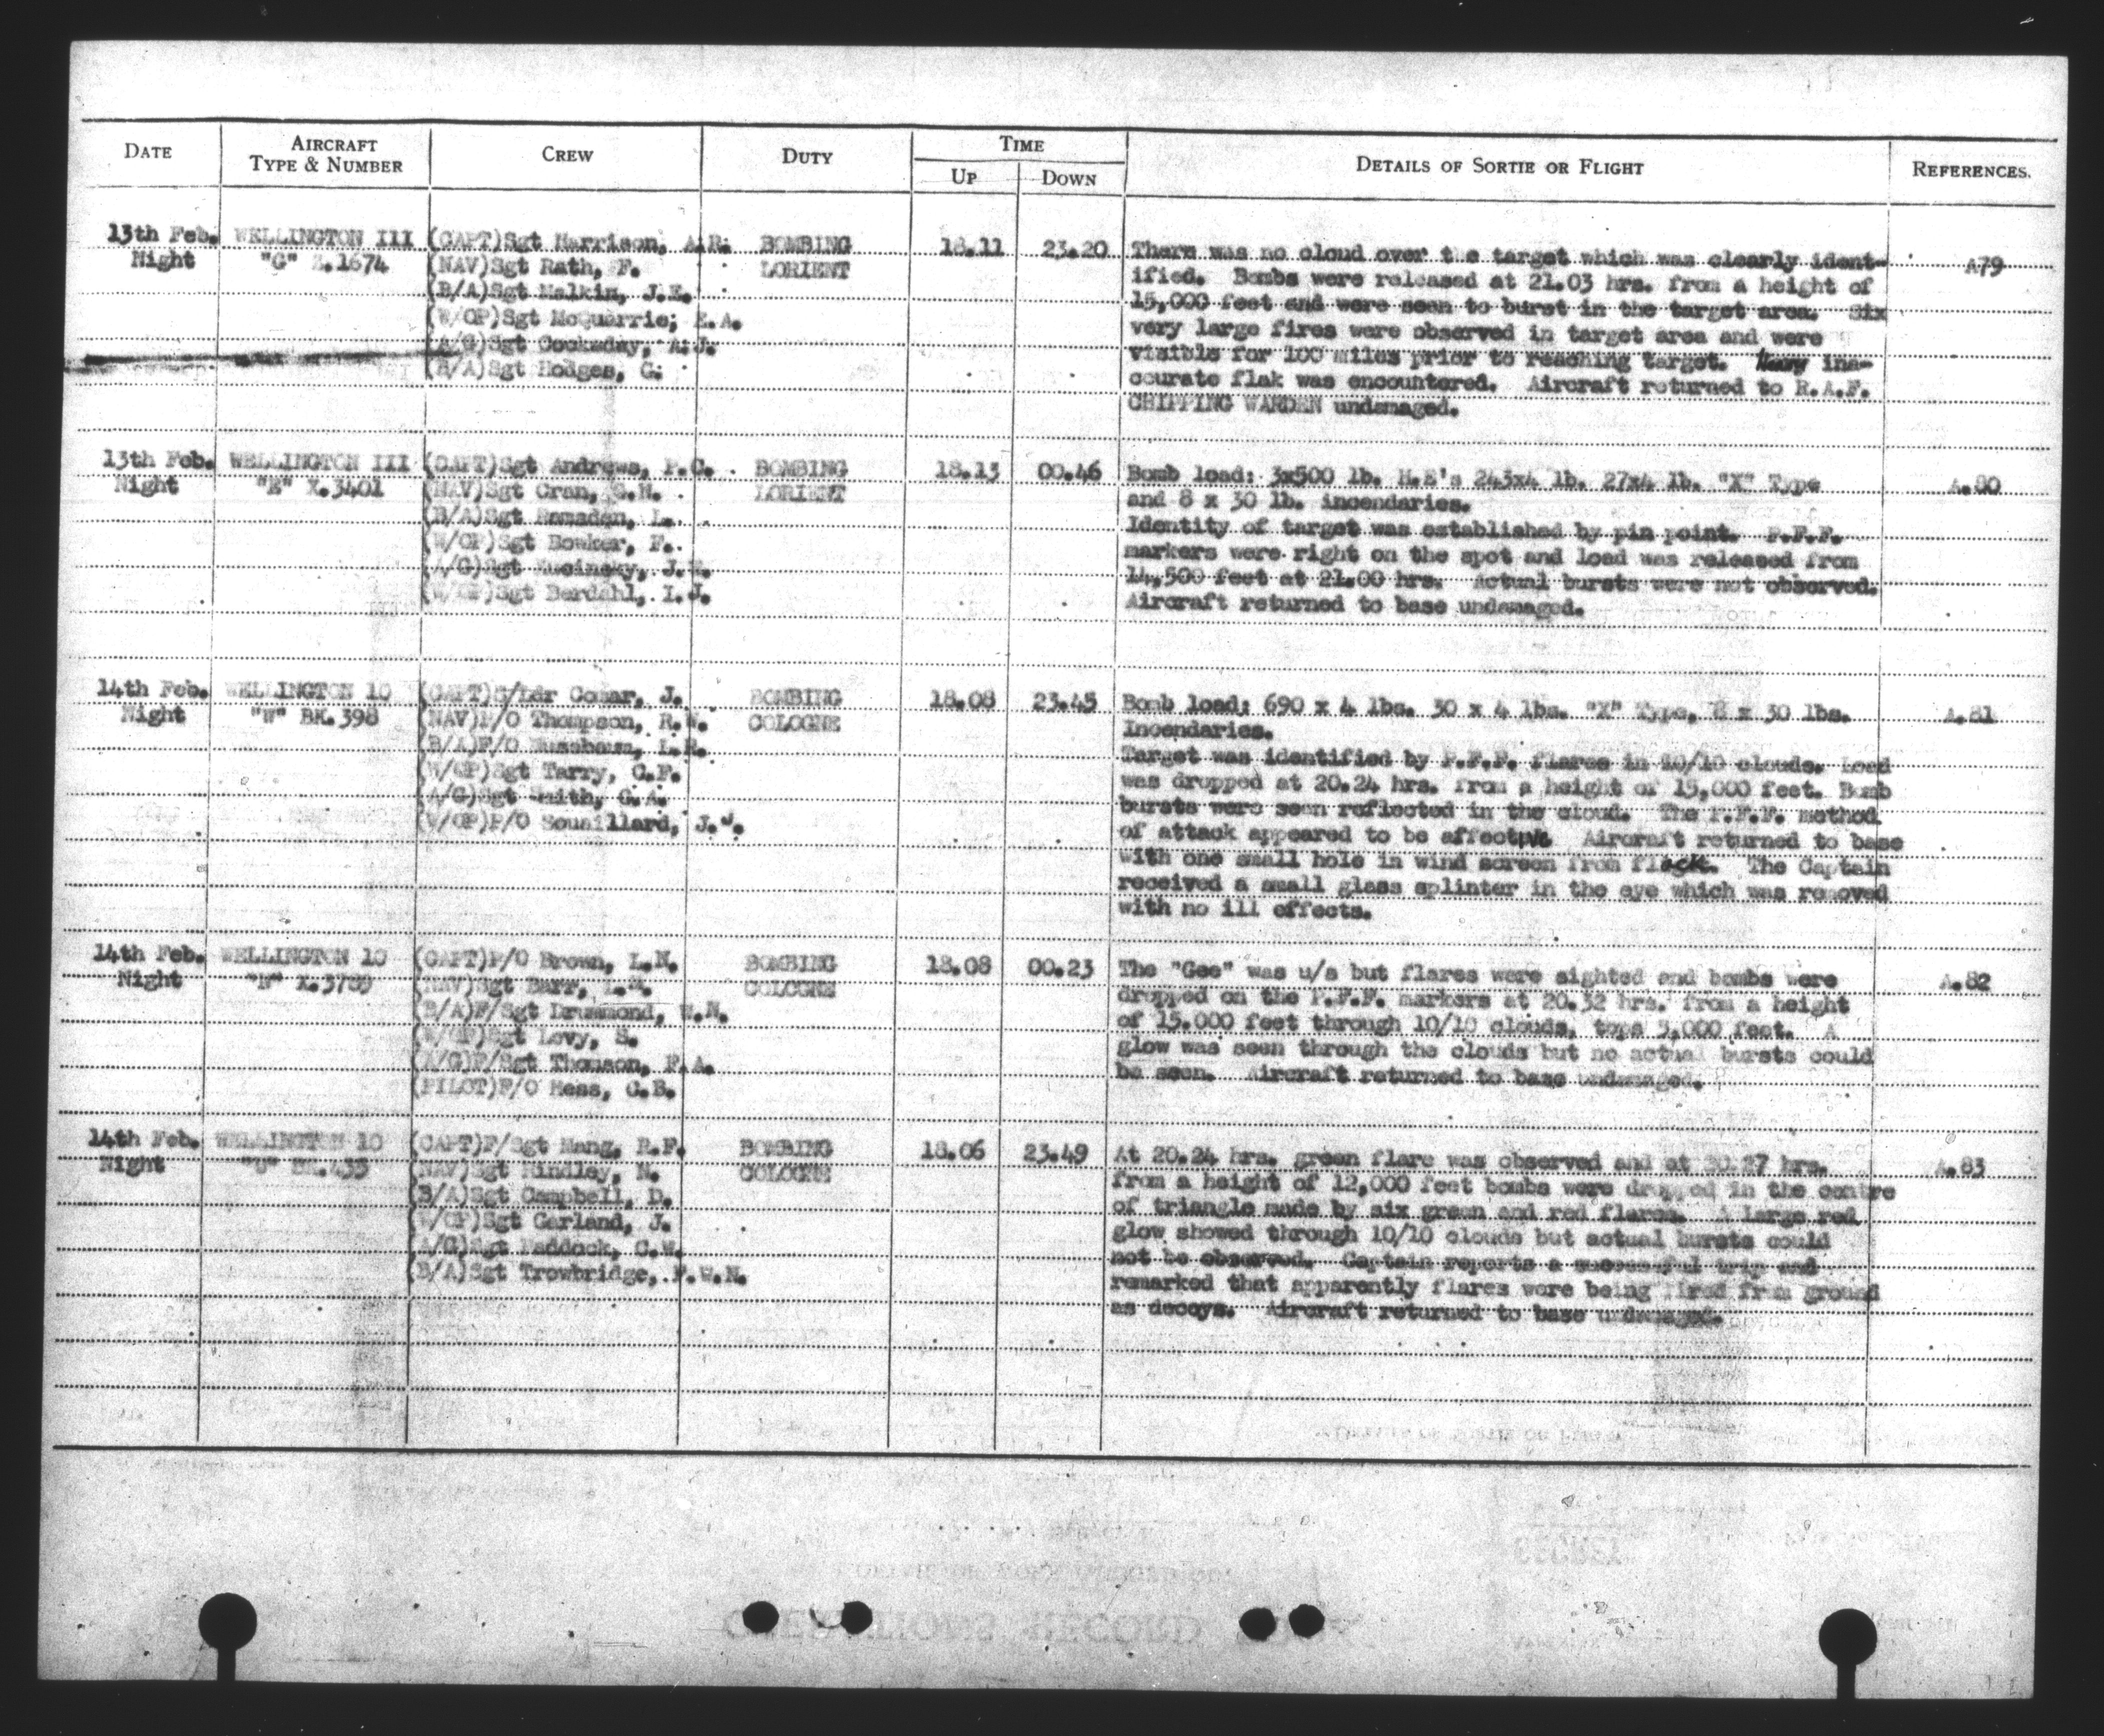 DATE
AIRCRAFT
TYPE & NUMBER
CREW
DUTY
TIME
UP
DOWN
DETAILS OF SORTIE OR FLIGHT
REFERENCES.
13th Feb.
Night
WELLINGTON III
"G" Z.1674
(CAPT)Sgt Harrison, A.R.
(NAV)Sgt Rath, F.
(B/A)Sgt Malkin, J.E.
(W/OP)Sgt McQuarrie; E.A.
(A/G)Sgt Cockaday, A.J.
(B/A)Sgt Hodges, G.
BOMBING
LORIENT
18.11
23.20
There was no cloud over the target which was clearly ident-
ified. Bombs were released at 21.03 hrs. from a height of
15,000 feet and were seen to burst in the target area. Six
very large fires were observed in target area and were
visible for 100 miles prior to reaching target. Heavy ina-
ccurate flak was encountered. Aircraft returned to R.A.F.
CHIPPING WARDEN undamaged.
A79
13th Feb.
Night
WELLINGTON III
"E" X.3401
(CAPT)Sgt Andrews, P.C.
(NAV)Sgt Cran,
(B/A)Sgt Ramsden, L.
(W/OP)Sgt Bowker, F.
(A/G)Sgt
(W/OP)Sgt Berdahl, I.J.
BOMBING
LORIENT
18.13
00.46
Bomb load: 3x500 lb. H.E's 243x4 lb. 27x4 lb. "X" Type
and 8 x 30 lb. incendaries.
Identity of target was established by pin point. P.F.F.
markers were right on the spot and load was released from
14,500 feet at 21.00 hrs. Actual bursts were not observed.
Aircraft returned to base undamaged.
A.80
14th Feb.
Night
WELLINGTON 10
"W" BK.398
(CAPT)S/Ldr Comar, J.
(NAV)P/O Thompson, R.W.
(B/A)F/O Nussbaum, L.R.
(W/OP)Sgt Tarry, C.F.
(A/G)Sgt Smith, G.A.
(W/OP)P/O Souaillard, J.J.
BOMBING
COLOGNE
18.08
23.45
Bomb load: 690 x 4 lbs. 30 x 4 lbs. "X" Type, 8 x 30 lbs.
Incendaries.
Target was identified by P.F.F. flares in 10/10 clouds. Load
was dropped at 20.24 hrs. from a height of 15,000 feet. Bomb
bursts were seen reflected in the cloud. The P.F.F. method
of attack appeared to be affective Aircraft returned to base
with one small hole in wind screen from flack. The Captain
received a small glass splinter in the eye which was removed
with no ill effects.
A.81
14th Feb.
Night
WELLINGTON 10
(CAPT)P/O Brown, L.N.
(NAV)Sgt Barr,
(B/A)F/Sgt Drummond, W.N.
(W/OP)Sgt Levy, S.
(A/G)F/Sgt Thomson, F.A.
(PILOT)F/O Hess, C.B.
BOMBING
COLOGNE
18.08
00.23
The "Gee" was u/s but flares were sighted and bombs were
dropped on the P.F.F. markers at 20.32 hrs. from a height
of 15.000 feet through 10/10 clouds, tops 5,000 feet. A
glow was seen through the clouds but no actual bursts could
be seen. Aircraft returned to base undamaged.
A.82
14th Feb.
Night
WELLINGTON 10
(CAPT)F/Sgt Mang, R.F.
(NAV)Sgt Findley, N.
(B/A)Sgt Campbell, D.
(W/OP)Sgt Garland, J.
(A/G)Sgt Paddock, C.W.
(B/A)Sgt Trowbridge, F.W.N.
BOMBING
COLOGNE
18.06
23.49
At 20.24 hrs. green flare was observed and at 20.27 hrs.
from a height of 12,000 feet bombs were dropped in the centre
of triangle made by six green and red flares. A large red
glow showed through 10/10 clouds but actual bursts could
not be observed. Captain reports a successful trip and
remarked that apparently flares were being fired from ground
as decoys. Aircraft returned to base undamaged.
A.83